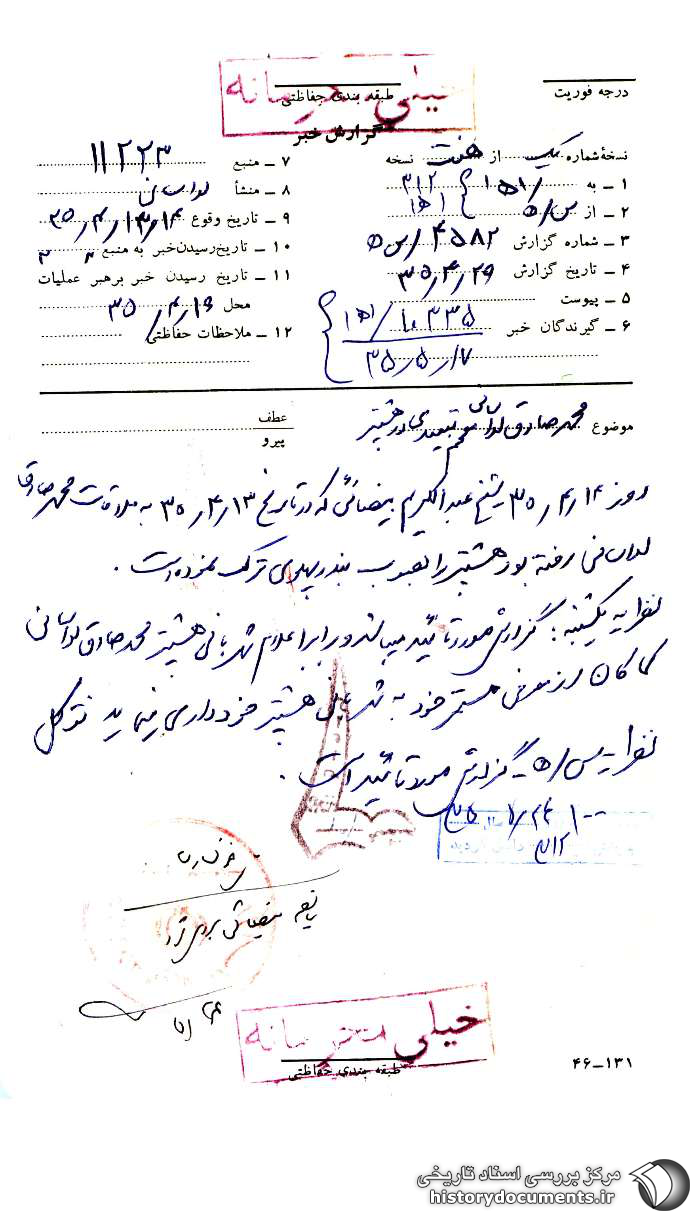 خیلی محرمانه
درجه فوریت
طبقه بندی حفاظتی
گزارش خبر
نسخهٔ شماره یک از هفت نسخه
۱ ـ به ۳۱۲
۲ ـ از س/ه
۳ ـ شماره گزارش ۴۵۸۲/س ه
۴ ـ تاریخ گزارش ۳۵٫۴٫۲۹
۵ ـ پیوست
۶ ـ گیرندگان خبر
۳۵٫۵٫۱۷
۷ ـ منبع ۱۱۲۲۳
۸ ـ منشأ لواسانی
۹ ـ تاریخ وقوع ۳۵٫۴٫۱۳٫۱۴
۱۰ ـ تاریخ رسیدن خبر به منبع 〃 〃
۱۱ ـ تاریخ رسیدن خبر برهبر عملیات
محل ۳۵٫۴٫۱۶
۱۲ ـ ملاحظات حفاظتی
موضوع محمد صادق لواسانی تبعیدی در هشتپر
عطف
پیرو
روز ۳۵٫۴٫۱۴ شیخ عبدالکریم بیضائی که در تاریخ ۳۵٫۴٫۱۳ به ملاقات محمد صادق
لواسانی رفته بود هشتپر را بصوب بندر پهلوی ترک نموده است .
نظریه یکشنبه : گزارش مورد تائید میباشد و برابر اعلام شهربانی هشتپر محمد صادق لواسانی
کماکان از معرفی خود به شهربانی هشتپر خودداری مینماید توکل
نظریه س/ه ـ گزارش مورد تائید است .
۳۱۲
خیلی محرمانه
طبقه بندی حفاظتی
۴۶ـ۱۳۱
مرکز بررسی اسناد تاریخی
historydocuments.ir